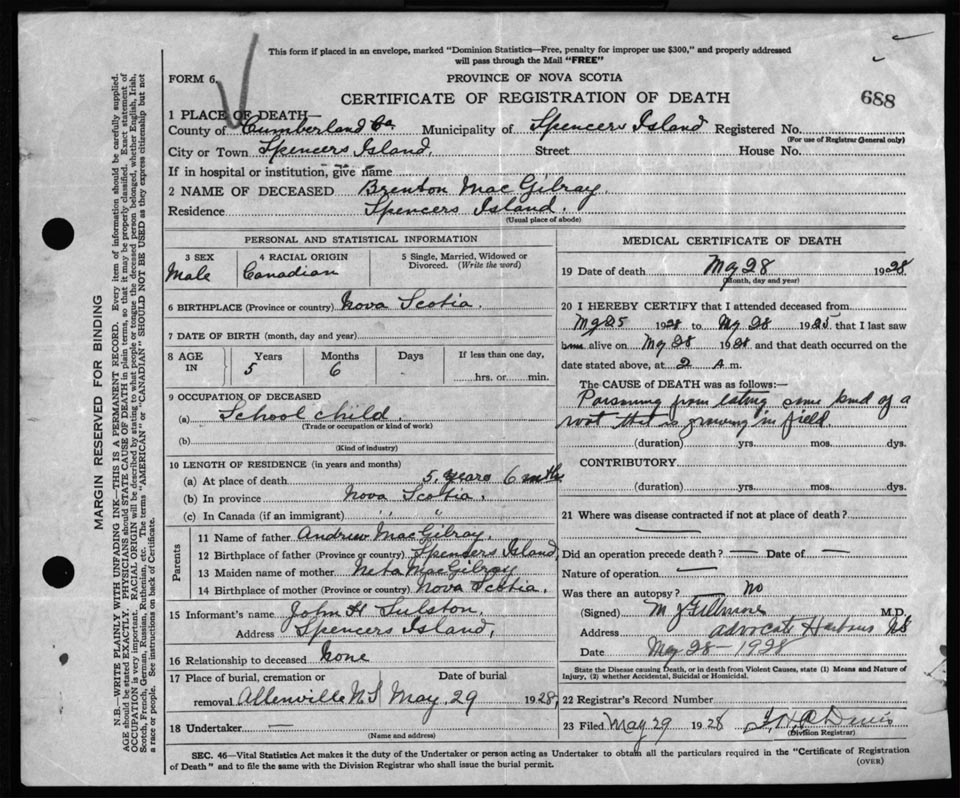 This form if placed in an envelope, marked "Dominion Statistics—Free, penalty for improper use $300," and properly addressed
will pass through the Mail "FREE"
FORM 6.
PROVINCE OF NOVA SCOTIA
CERTIFICATE OF REGISTRATION OF DEATH
688
1 PLACE OF DEATH—
County of Cumberland Co Municipality of Spencers Island Registered No.
(For use of Registrar General only)
City or Town Spencers Island. Street House No.
If in hospital or institution, give name
2 NAME OF DECEASED Brenton MacGilray.
Residence Spencers Island.
(Usual place of abode)
PERSONAL AND STATISTICAL INFORMATION
3 SEX 4 RACIAL ORIGIN 5 Single, Married, Widowed or Divorced. (Write the word)
Male Canadian
6 BIRTHPLACE (Province or country) Nova Scotia.
7 DATE OF BIRTH (month, day and year)
8 AGE IN Years Months Days If less than one day,
5 6 hrs. or min.
9 OCCUPATION OF DECEASED
(a) School child.
(Trade or occupation or kind of work)
(b)
(Kind of industry)
10 LENGTH OF RESIDENCE (in years and months)
(a) At place of death 5. years 6 mths
(b) In province Nova Scotia.
(c) In Canada (if an immigrant) " "
Parents
11 Name of father Andrew MacGilray.
12 Birthplace of father (Province or country) Spencers Island,
13 Maiden name of mother Neta MacGilray
14 Birthplace of mother (Province or country) Nova Scotia.
15 Informant's name John H Sulston.
Address Spencers Island,
16 Relationship to deceased None
17 Place of burial, cremation or Date of burial
removal Allenville N.S May. 29 1928,
18 Undertaker —
(Name and address)
MEDICAL CERTIFICATE OF DEATH
19 Date of death My 28 1928
(Month, day and year)
20 I HEREBY CERTIFY that I attended deceased from
My 25 1928 to My 28 1928 that I last saw
alive on My 28 1928 and that death occurred on the
date stated above, at 2 A m.
The CAUSE OF DEATH was as follows:—
Poisoning from eating some kind of a
root that is growing in field.
(duration) yrs. mos. dys.
CONTRIBUTORY
(duration) yrs. mos. dys.
21 Where was disease contracted if not at place of death?
—
Did an operation precede death? — Date of —
Nature of operation —
Was there an autopsy? No
(Signed) M J Fillmore M.D.
Address Advocate Harbour NS
Date May 28 - 1928
State the Disease causing Death, or in death from Violent Causes, state (1) Means and Nature of
Injury, (2) whether Accidental, Suicidal or Homicidal.
22 Registrar's Record Number
23 Filed May 29 1928
(Division Registrar)
SEC. 46—Vital Statistics Act makes it the duty of the Undertaker or person acting as Undertaker to obtain all the particulars required in the "Certificate of Registration
of Death" and to file the same with the Division Registrar who shall issue the burial permit.
(OVER)
MARGIN RESERVED FOR BINDING
N.B.—WRITE PLAINLY WITH UNFADING INK—THIS IS A PERMANENT RECORD. Every item of information should be carefully supplied.
AGE should be stated EXACTLY. PHYSICIANS should STATE CAUSE OF DEATH in plain terms, so that it may be properly classified. Exact statement of
OCCUPATION is very important. RACIAL ORIGIN will be described by stating to what people or tongue the deceased person belonged, whether English, Irish,
Scotch, French, German, Russian, Ruthenian, etc. The terms "AMERICAN" or "CANADIAN" SHOULD NOT BE USED as they express citizenship but not
a race or people. See instructions on back of Certificate.